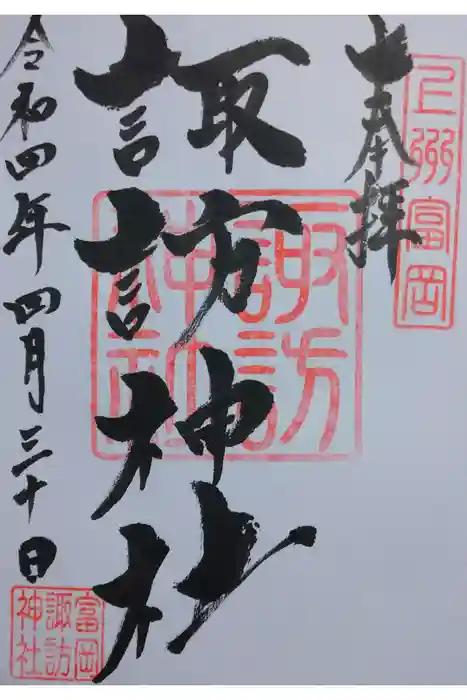 奉拝
上州富岡
諏訪神社
諏訪神社
令和四年四月三十日
富岡
諏訪
神社